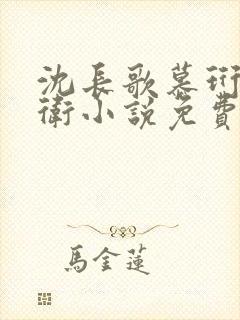 沈長歌慕珩
衛小說免費
馬金蓮